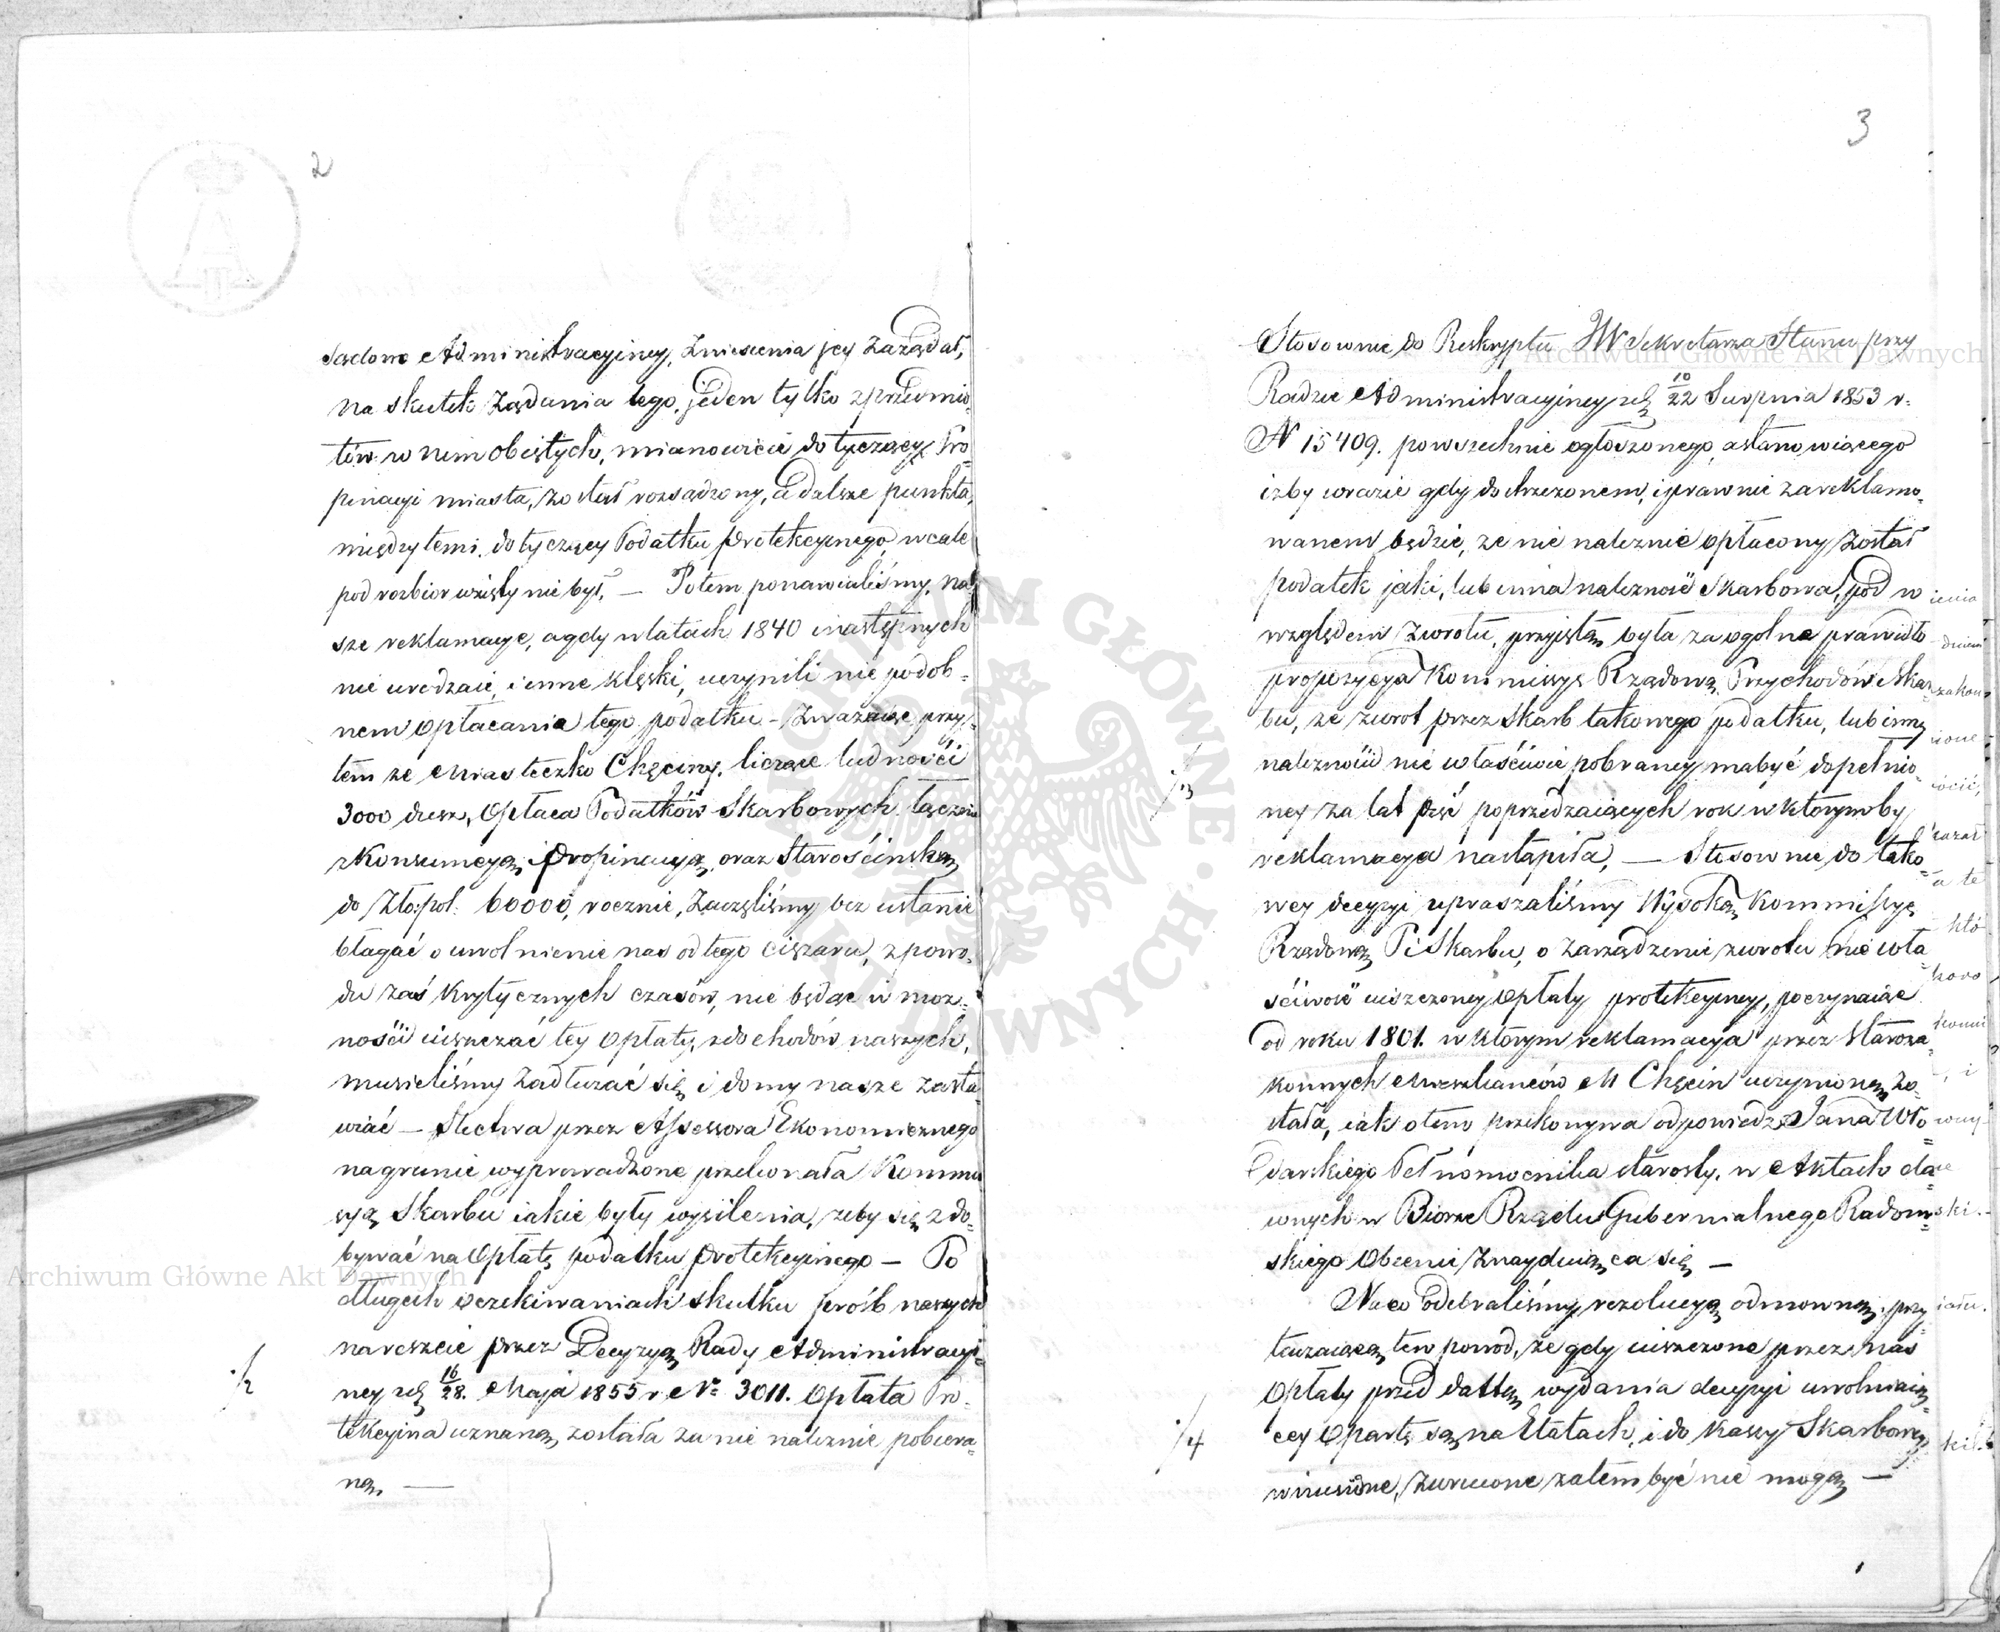 2
sadome Administracyiney, zniesienia jey zażądał,
na skutek żądania tego, jeden tylko z przedmio-
tów w nim obiętych, mianowicie dotyczący Pro-
pinacyi miasta, został rozsądzony, a dalsze punkta,
między temi, dotyczący Podatku protekcyinego, wcale
pod rozbiór wzięty nie był, — Potem ponawialiśmy na-
sze reklamacye, a gdy w latach 1840 i następnych
nie urodzaie, i inne klęski, uczynili nie podob-
nem opłacania tego podatku — Zważaiąc przy-
tém że Miasteczko Chęciny, liczące ludności
3000 dusz, opłaca Podatków Skarbowych łącznie
z Konsumcyą i Propinacyą, oraz Starościńską
do Zło: pol: 60000, rocznie, Zaczęliśmy bez ustanie
błagać o uwolnienie nas od tego ciężaru, z powo-
du zaś krytycznych czasów, nie będąc w moż-
ności uiszczać tey opłaty, z dochodów naszych,
musieliśmy zadłużać się i domy nasze zasta-
wiać — Śledztwa przez Assessora Ekonomicznego
na gruncie wyprowadzone przekonała Kommis-
syą Skarbu iakie były wysilenia, żeby się zdo-
bywać na opłatę podatku protekcyinego — Po
długich oczekiwaniach skutku próśb naszych
nareszcie przez Decyzyą Rady Administracyi-
ney z d. 16/28. Maja 1855 r No 3011. opłata Pro-
tekcyina uznaną została za nie należnie pobiera-
ną, —
·/2
3
Stosownie do Reskryptu JW Sekretarza Stanu przy
Radzie Administracyiney z d. 10/22 Sierpnia 1853 r.
N 15409. powszechnie ogłoszonego, a stanowiącego
iżby w razie gdy dostrzeżonem, i prawnie zareklamo-
wanem będzie, że nie należnie opłacony został
podatek jaki, lub inna należność Skarbowa, pod w
względem zwrotu, przyiętą była za ogólne prawidło
propozycya Kommissyi Rządowey Przychodów i Skar-
bu, że zwrot przez Skarb takowego podatku, lub inney
należności nie właściwie pobraney ma być dopełnio-
ney za lat pięć poprzedzaiących rok w którym by
reklamacya nastąpiła, — Stosownie do tako-
wey decyzyi upraszaliśmy Wysoką Kommissyę
Rządową P i Skarbu, o zarządzenie zwrotu nie wła-
ściwość uiszczoney opłaty protekcyiney, poczynaiąc
od roku 1801. w którym reklamacya przez Staroza-
konnych Mieszkańców M Chęcin uczynioną zo-
stała, iak o tem przekonywa odpowiedź Jana Wło-
darskiego Pełnomocnika Starosty, w Aktach da-
wnych w Biórze Rządu Gubernialnego Radom-
skiego obecnie znayduiąca się —
Na co odebraliśmy rezolucyą odmowną, przy
taczaiącą ten powod, że gdy uiszczone przez nas
opłaty przed datą wydania decyzyi uwolniaią-
cey oparte są na Etatach, i do Kassy Skarbowey
wniesione, zwrócone zatem być nie mogą —
·/3
·/4